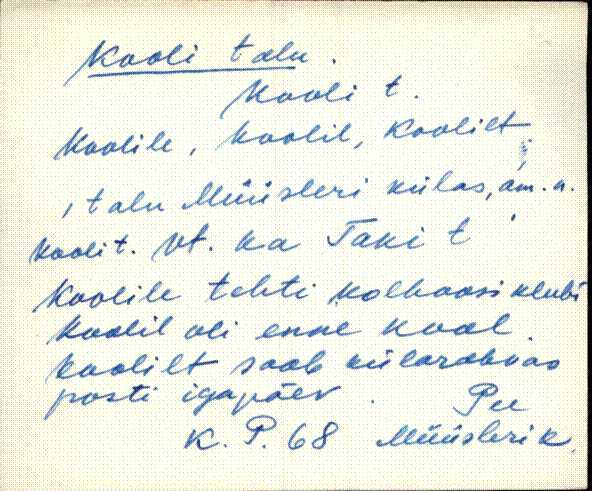 Kooli talu.
Kooli t.
Koolile, koolil, koolilt
, talu Müüsleri külas, am. n.
Kooli t. Vt. ka Taki t
Koolile tehti kolhoosi klubi
Koolil oli enne kool
koolilt saab külarahvas
posti igapäev. Pee
K. P. 68 Müüsleri k.